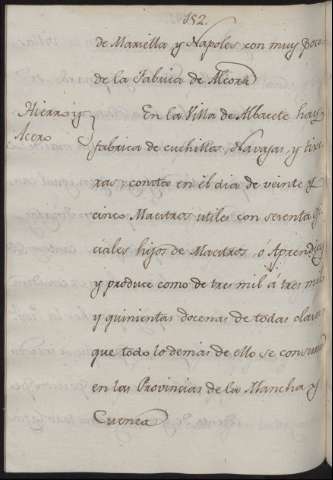 152.
de Marsella y Napoles con muy poca
de la Fabrica de Alcora
Hierro y
Acero
En la Villa de Albacete hay
fabrica de cuchillos, Navajas y tixe
ras; consta en el dia de veinte y
cinco Maestros utiles con sesenta
ciales hijos de Maestros, o Aprendices
y produce como de tres mil á tres mil
y quinientas docenas de todas clases
que todo lo demas de ello se consume
en las Provincias de la Mancha y
Cuenca